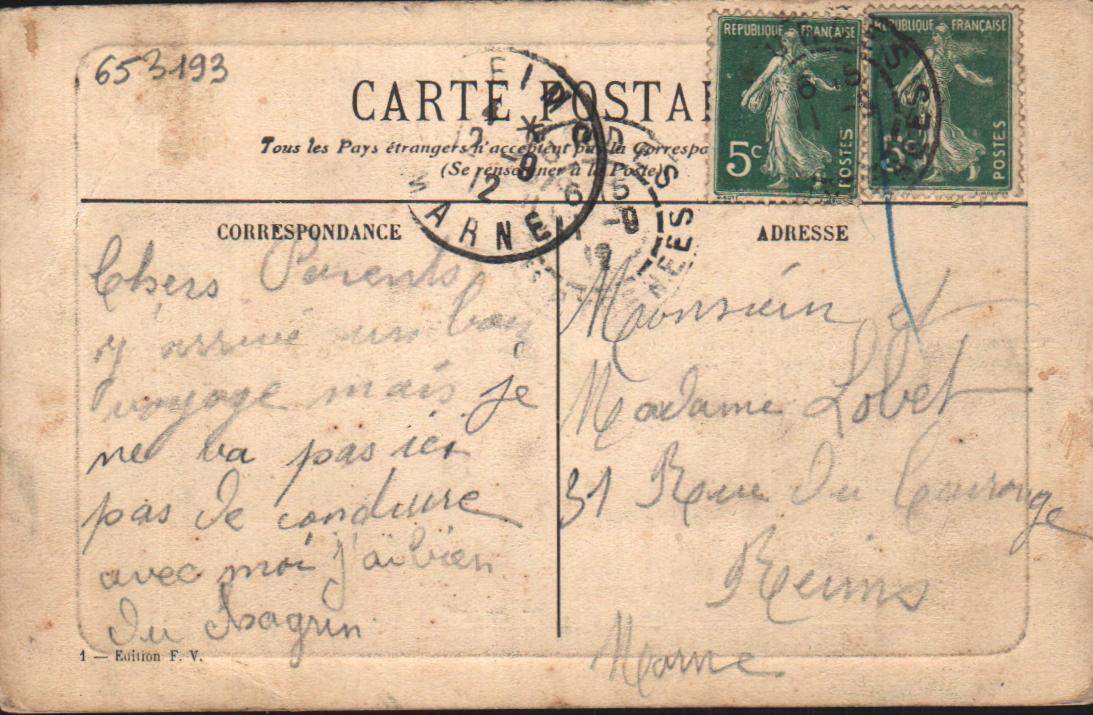 653193
CARTE POSTA
Tous les Pays étrangers n'acceptent pas la Correspo
(Se renseigner à la Poste)
RÉPUBLIQUE FRANÇAISE
5c
POSTES
RÉPUBLIQUE FRANÇAISE
5c
POSTES
MARNE
12
CORRESPONDANCE
Chers Parents
y arrivé un bon
voyage mais je
ne va pas ici
pas de conduire
avec moi j'ai bien
du chagrin
1 — Edition F. V.
ADRESSE
Monsieur et
Madame Lobet
31 Rue du
Reims
Marne